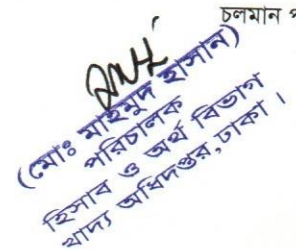 চলমান
(মোঃ মাহমুদ হাসান)
পরিচালক
হিসাব ও অর্থ বিভাগ
খাদ্য অধিদপ্তর, ঢাকা।